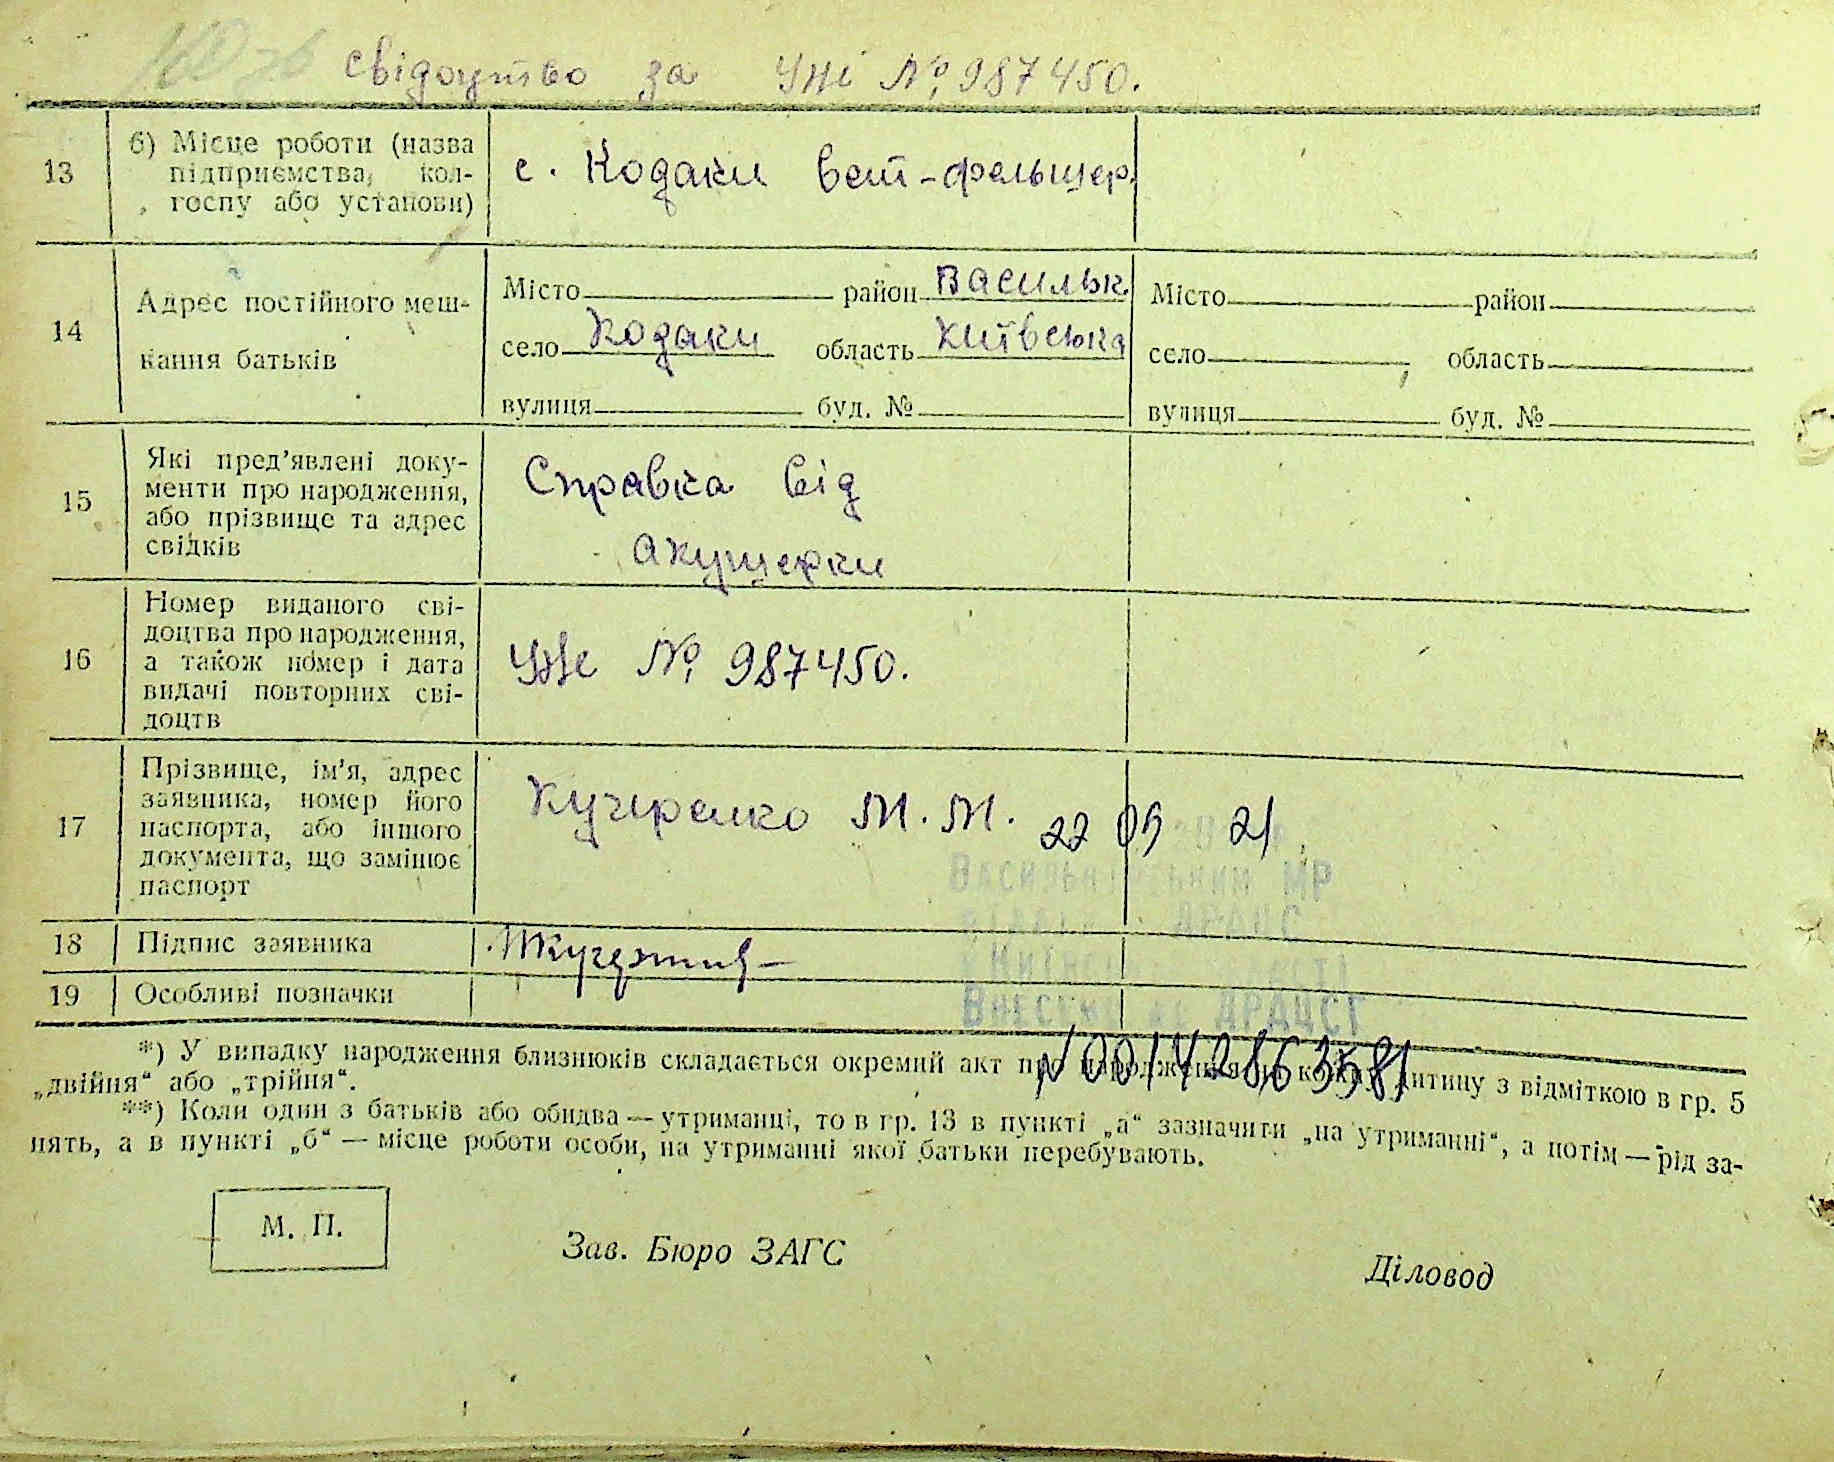 свідоцтво за УЖі № 987450.
13
б) Місце роботи (назва
підприємства, кол-
госпу або установи)
с. Кодаки вет-фельшер.
14
Адрес постійного меш-
кання батьків
Місто район Васильк.
село Кодаки область Київська
вулиця буд. №
Місто район
село область
вулиця буд. №
15
Які пред'явлені доку-
менти про народження,
або прізвище та адрес
свідків
Справка від
акушерки
16
Номер виданого сві-
доцтва про народження,
а також номер і дата
видачі повторних сві-
доцтв
УЖе № 987450.
17
Прізвище, ім'я, адрес
заявника, номер його
паспорта, або іншого
документа, що замінює
паспорт
Кучеренко М. М.
22 09 21
МР
ДРАЦС
Внесено до ДРАЦСГ
18
Підпис заявника
19
Особливі позначки
№ 00147863581
*) У випадку народження близнюків складається окремий акт про народження на кожну дитину з відміткою в гр. 5
„двійня“ або „трійня“.
**) Коли один з батьків або обидва — утриманці, то в гр. 13 в пункті „а“ зазначити „на утриманні“, а потім — рід за-
нять, а в пункті „б“ — місце роботи особи, на утриманні якої батьки перебувають.
М. П.
Зав. Бюро ЗАГС
Діловод